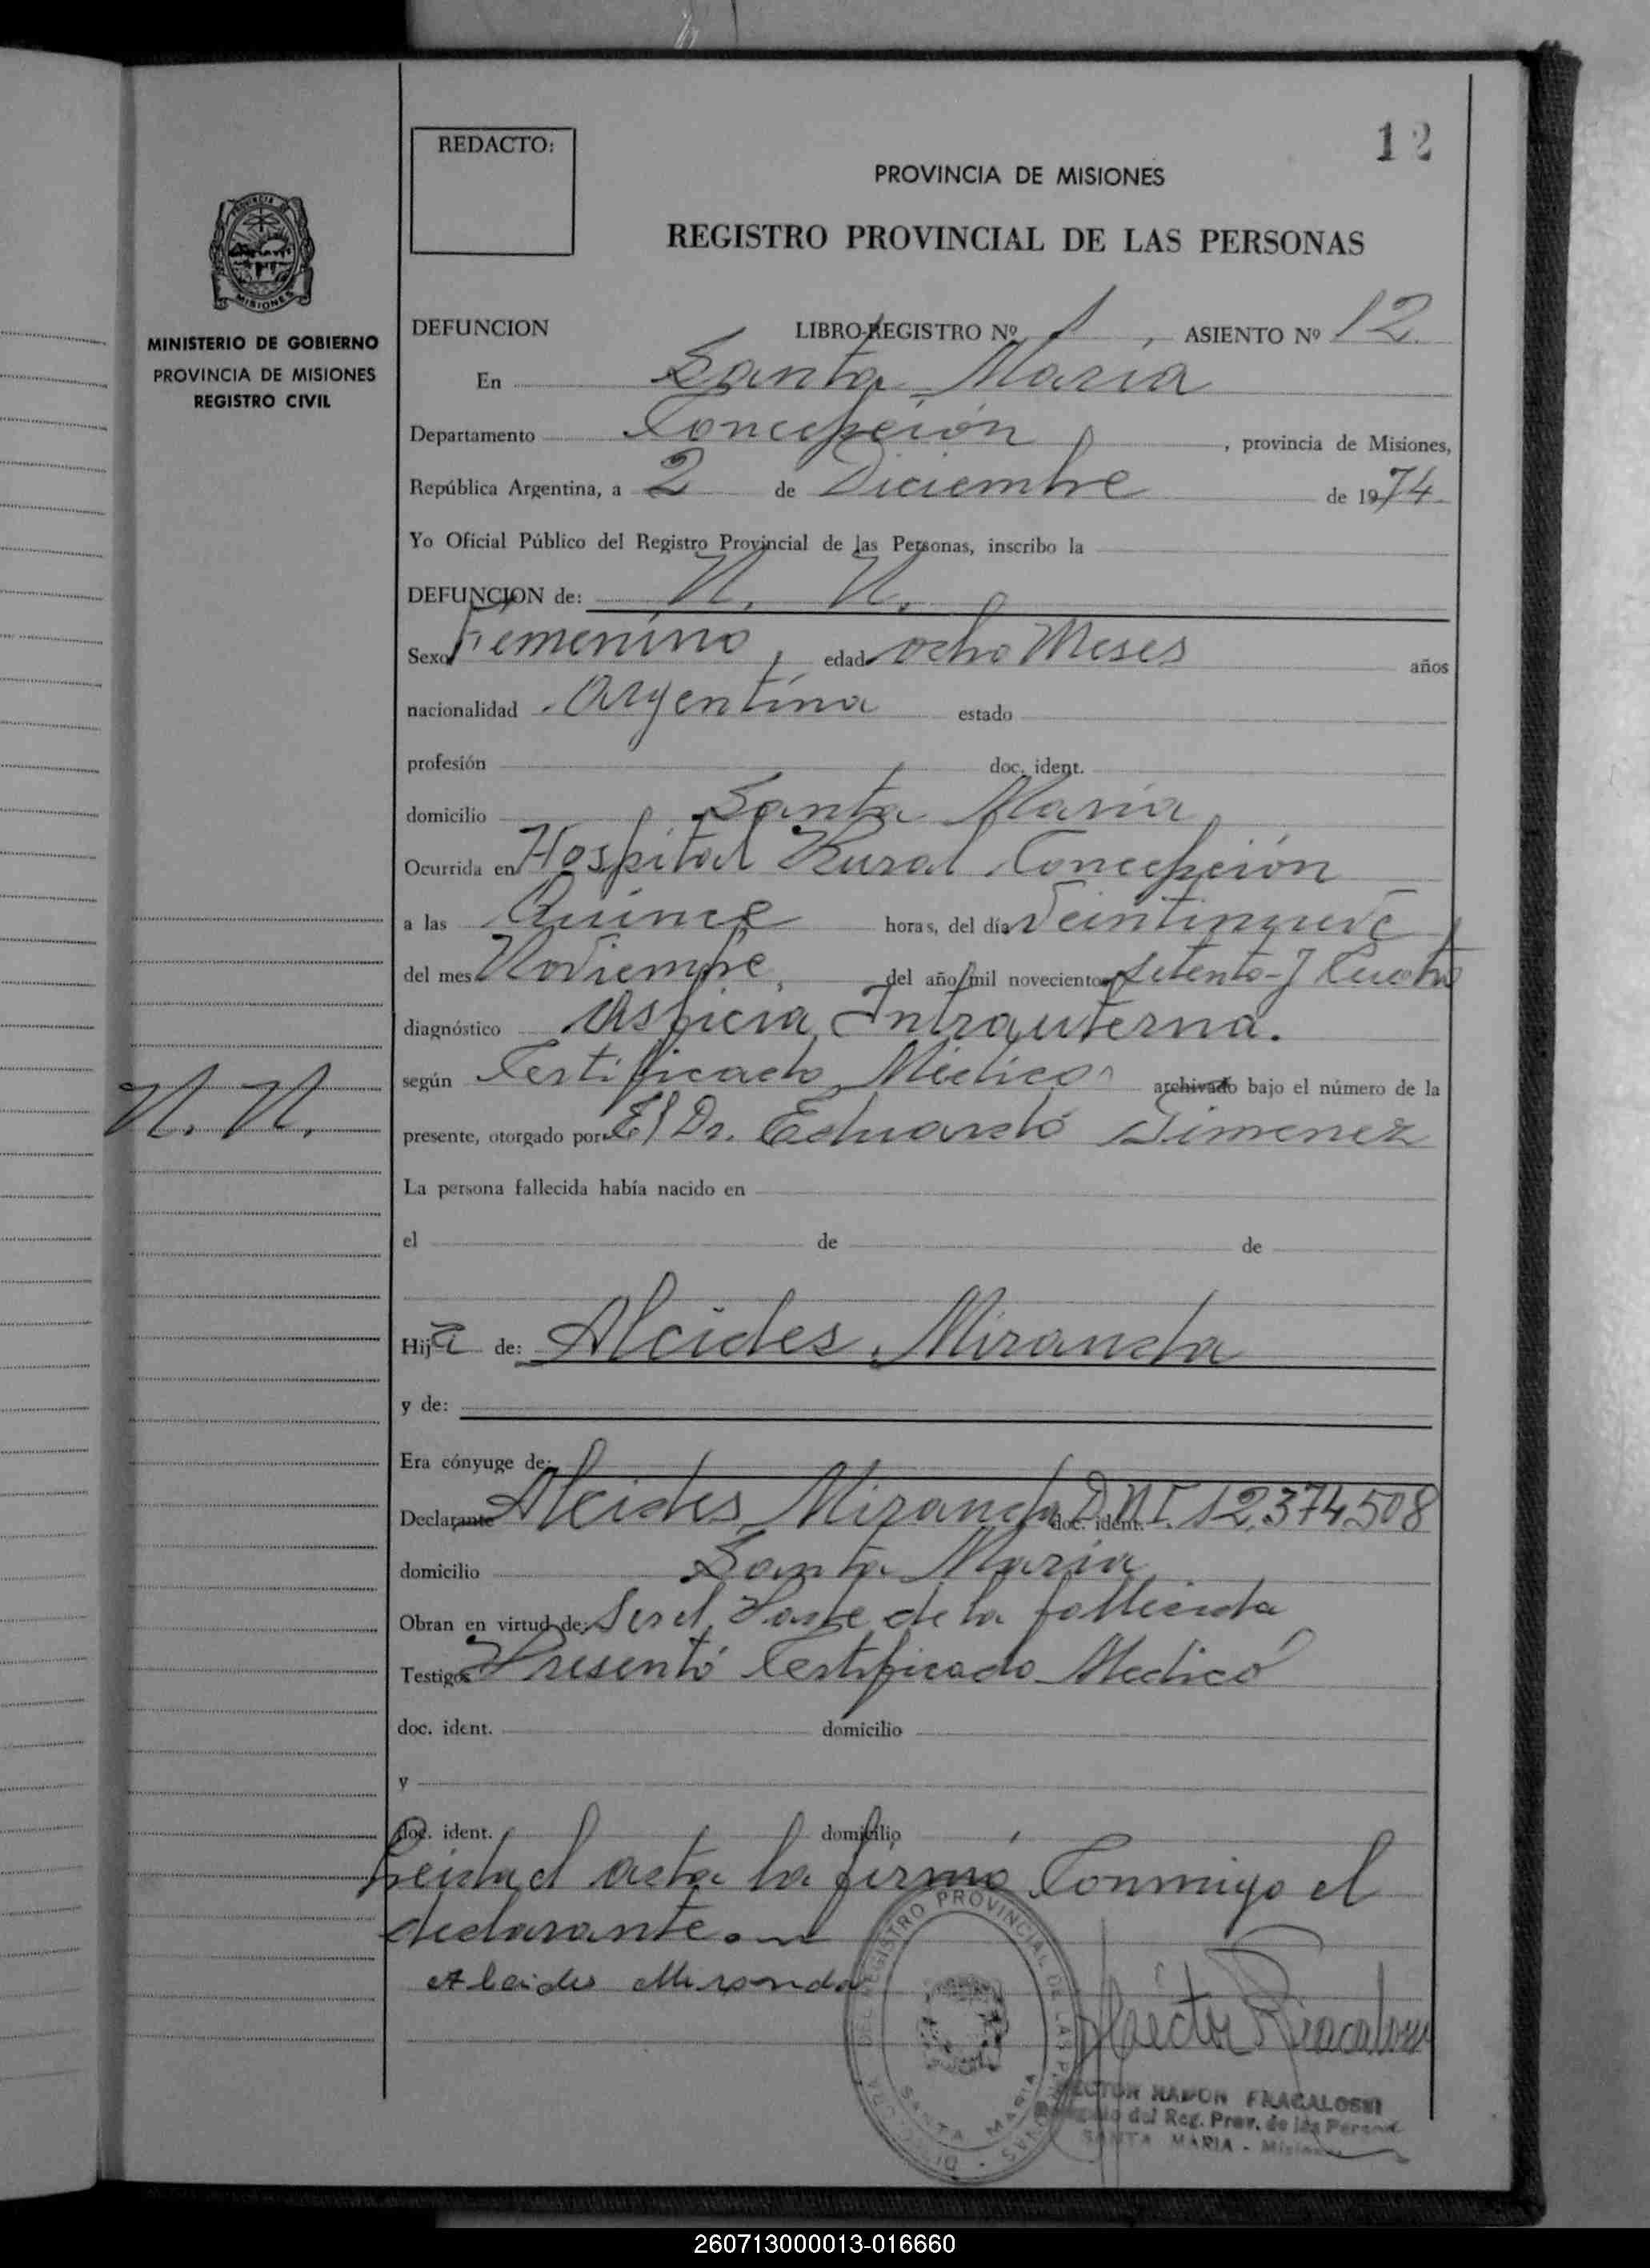 12
REDACTO:
PROVINCIA DE MISIONES
REGISTRO PROVINCIAL DE LAS PERSONAS
MISIONES
MINISTERIO DE GOBIERNO
PROVINCIA DE MISIONES
REGISTRO CIVIL
DEFUNCION LIBRO-REGISTRO Nº 1, ASIENTO Nº 12
En Santa Maria
Departamento Concepción, provincia de Misiones,
República Argentina, a 2 de Diciembre de 1974
Yo Oficial Público del Registro Provincial de las Personas, inscribo la
DEFUNCION de: N. N.
Sexo Femenino, edad ocho Meses años
nacionalidad Argentina estado
profesión doc. ident.
domicilio Santa Maria
Ocurrida en Hospital Rural Concepción
a las Quince horas, del día Veintinueve
del mes Noviembre, del año mil novecientos setenta y Cuatro
diagnóstico Asficia Intrauterna.
según Certificado Médico archivado bajo el número de la
N. N.
presente, otorgado por El Dr. Eduardo Jimenez
La persona fallecida había nacido en
el de de
Hija de: Alcides Miranda
y de:
Era cónyuge de:
Declarante Alcides Miranda doc. ident. D.N.I. 12,374,508
domicilio Santa Maria
Obran en virtud de: Ser el Padre de la fallecida
Testigos Presentó Certificado Medico
doc. ident. domicilio
y
doc. ident. domicilio
Leida el acta la firmó Conmigo el
declarante.
Alcides Miranda
REGISTRO PROVINCIAL DE LAS PERSONAS
SANTA MARIA
HECTOR RAMON FRACALOSSI
Delegado del Reg. Prov. de las Person.
SANTA MARIA - Misiones
260713000013-016660